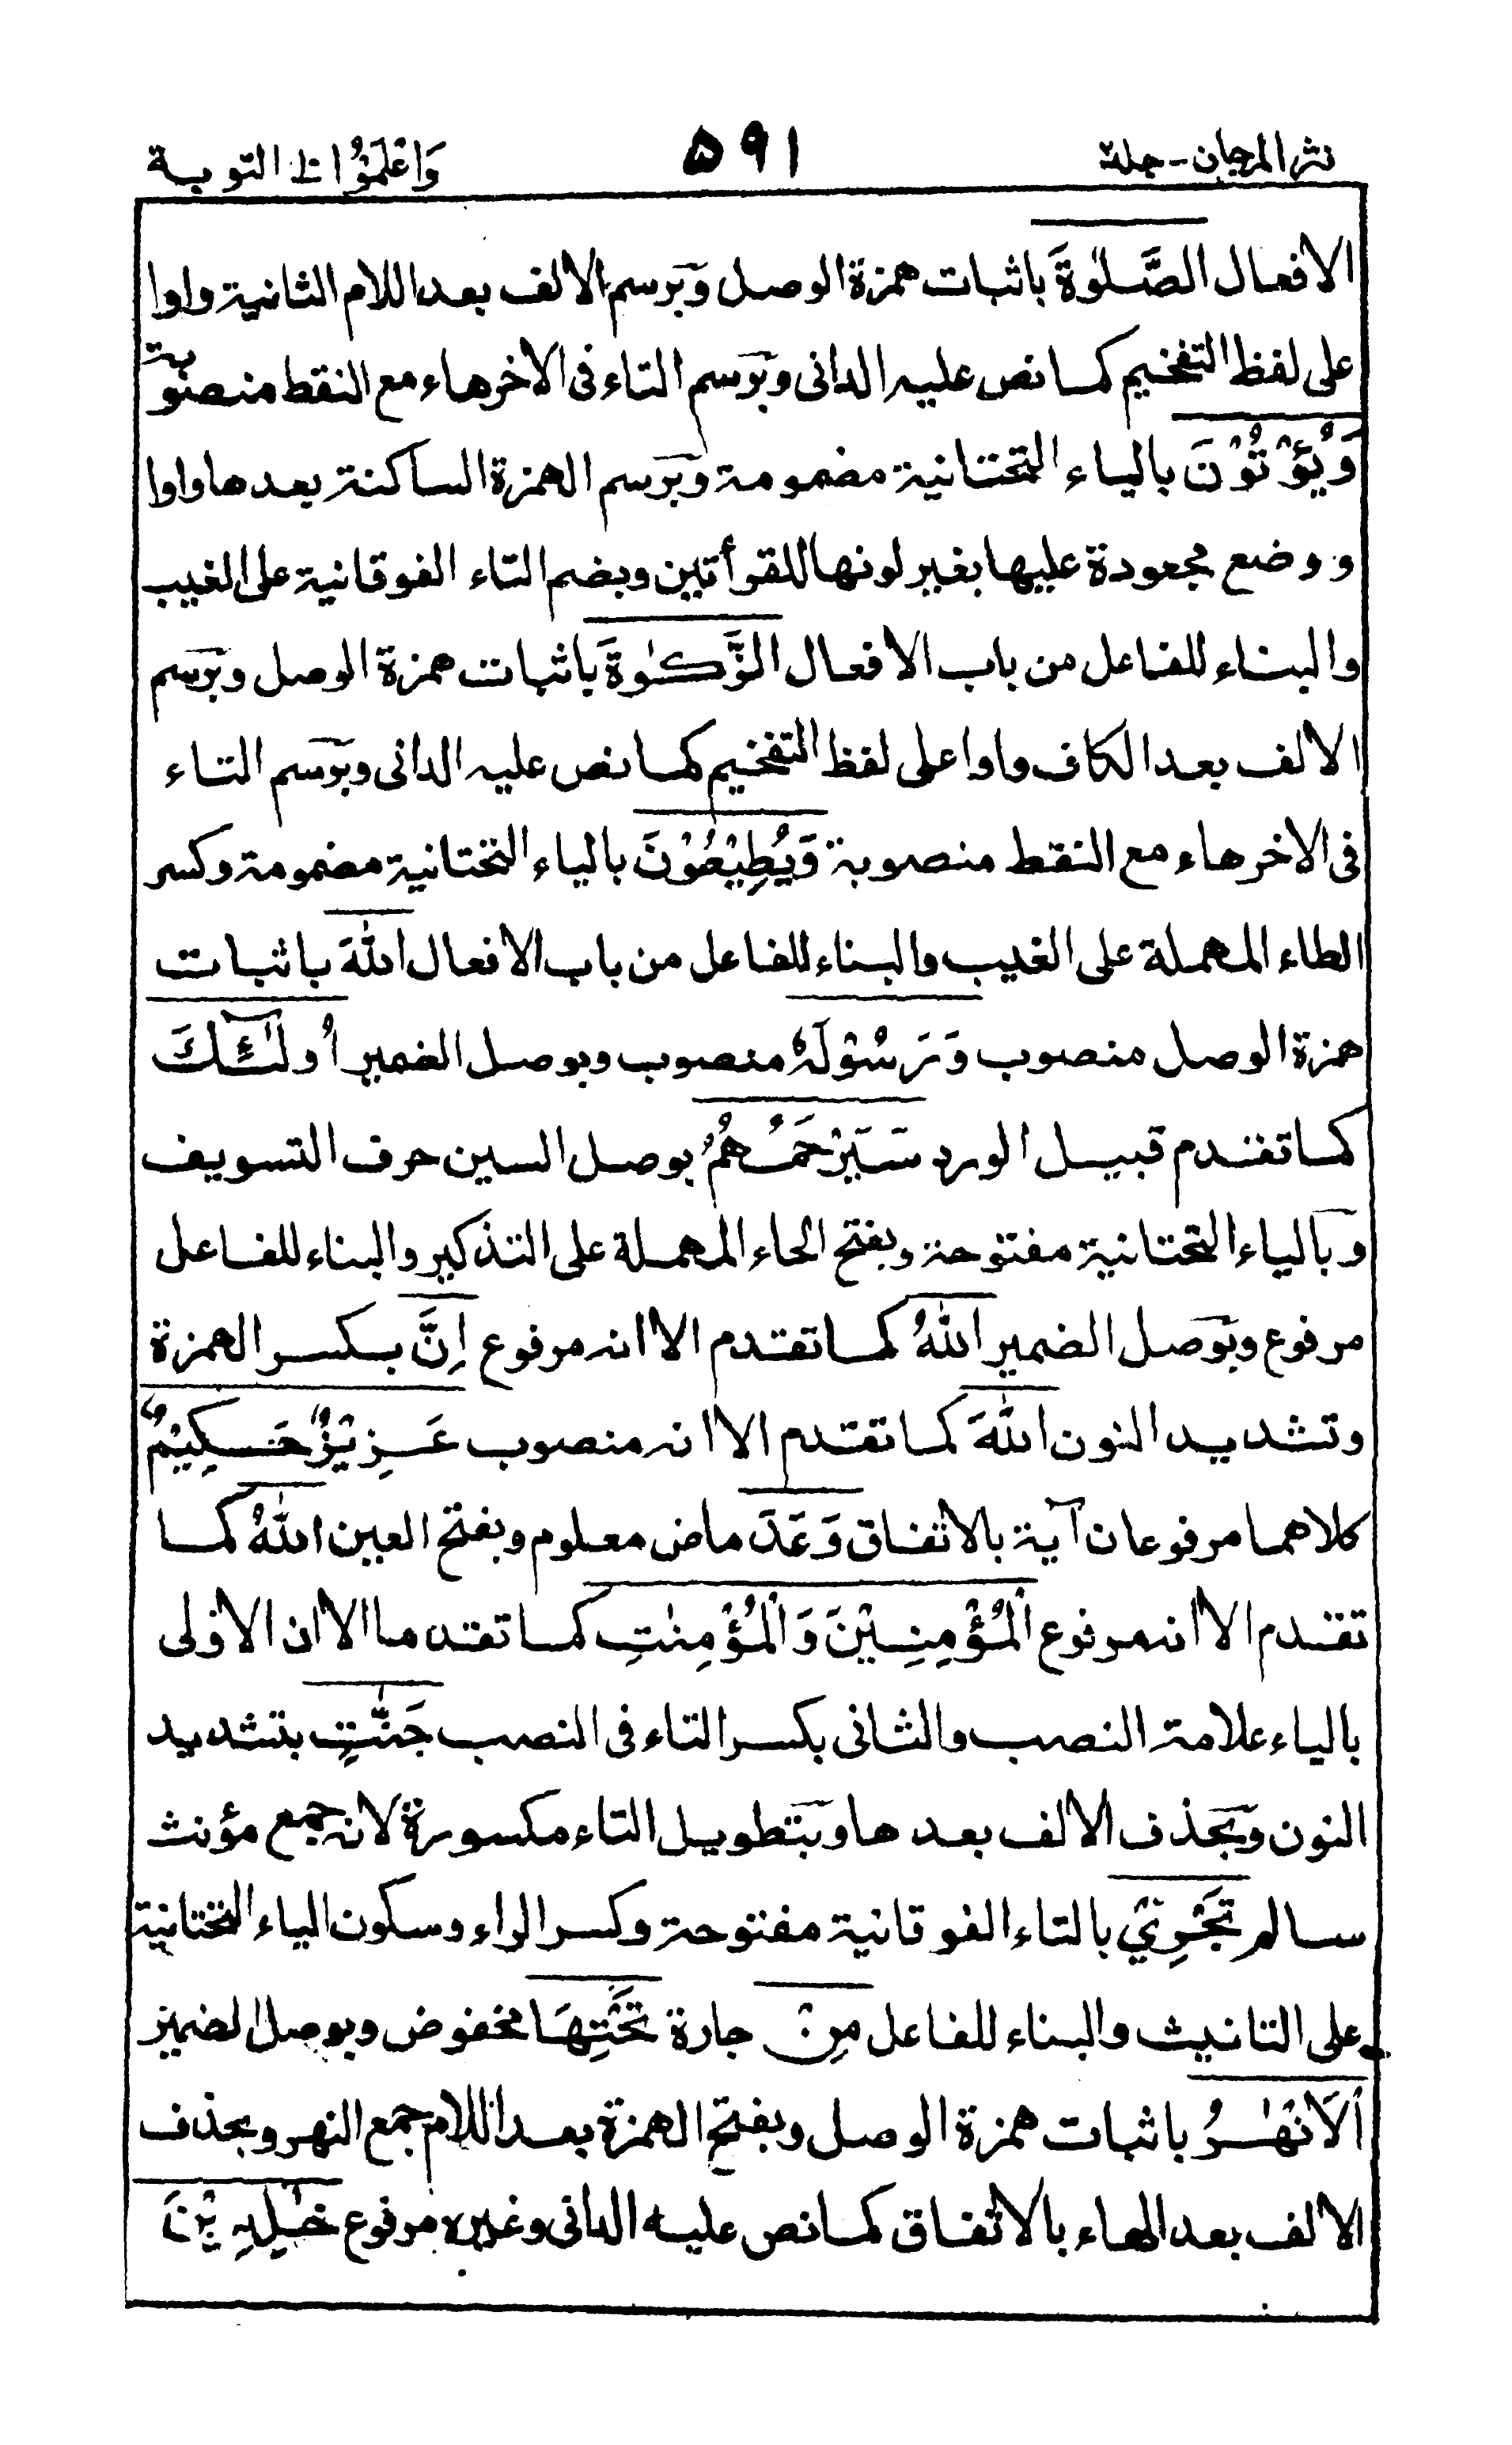 نثر المرجان - جلد٢
٥٩١
وَاعْلَمُوْٓا ١٠ التوبة
الافعال الصَّلٰوةَ باثبات همزة الوصل وَبرسم الالف بعد اللام الثانية واوا
على لفظ التفخيم كما نص عليه الدانى وبرَسم التاء فى الاخرهاء مع النقط منصوبة
وَيُؤْتُوْنَ بالياء التحتانية مضمومة وَبرَسم الهمزة الساكنة بعدها واوا
ووضع مجعودة عليها بغير لونها للقرأتين وبضم التاء الفوقانية على الغيب
والبناء للفاعل من باب الافعال الزَّكٰوةَ باثبات همزة الوصل وبرَسم
الالف بعد الكاف واوا على لفظ التفخيم كما نص عليه الدانى وبرَسم التاء
فى الاخرهاء مع النقط منصوبة وَيُطِيْعُوْنَ بالياء التحتانية مضمومة وكسر
الطاء المهملة على الغيب والبناء للفاعل من باب الافعال اللّٰهَ باثبات
همزة الوصل منصوب وَرَسُوْلَهٗ منصوب وبوصل الضمير اُولٰٓئِكَ
كما تقدم قبيل الورد سَيَرْحَمُهُمُ بوصل السين حرف التسويف
وَبالياء التحتانية مفتوحة وبفتح الحاء المهملة على التذكير والبناء للفاعل
مرفوع وبوَصل الضمير اللّٰهُ كما تقدم الا انه مرفوع اِنَّ بكسر الهمزة
وتشديد النون اللّٰهَ كما تقتدم الا انه منصوب عَزِيْزٌ حَكِيْمٌ
كلاهما مرفوعان آية بالاتفاق وَعَدَ ماض معلوم وبفتح العين اللّٰهُ كما
تقدم الا انه مرفوع الْمُؤْمِنِيْنَ وَالْمُؤْمِنٰتِ كما تقدما الا ان الاولى
بالياء علامة النصب والثانى بكسر التاء فى النصب جَنّٰتٍ بتشديد
النون وَبحذف الالف بعدها وبَتطويل التاء مكسورة لانه جمع مؤنث
سالم تَجْرِيْ بالتاء الفوقانية مفتوحة وكسر الراء وسكون الياء التحتانية
على التانيث والبناء للفاعل مِنْ جارة تَحْتِهَا مخفوض وبوصل الضمير
اَلْاَنْهٰرُ باثبات همزة الوصل وبفتح الهمزة بعد اللام جمع النهر وبحذف
الالف بعد الهاء بالاتفاق كما نص عليه الدانى وغيره مرفوع خٰلِدِيْنَ